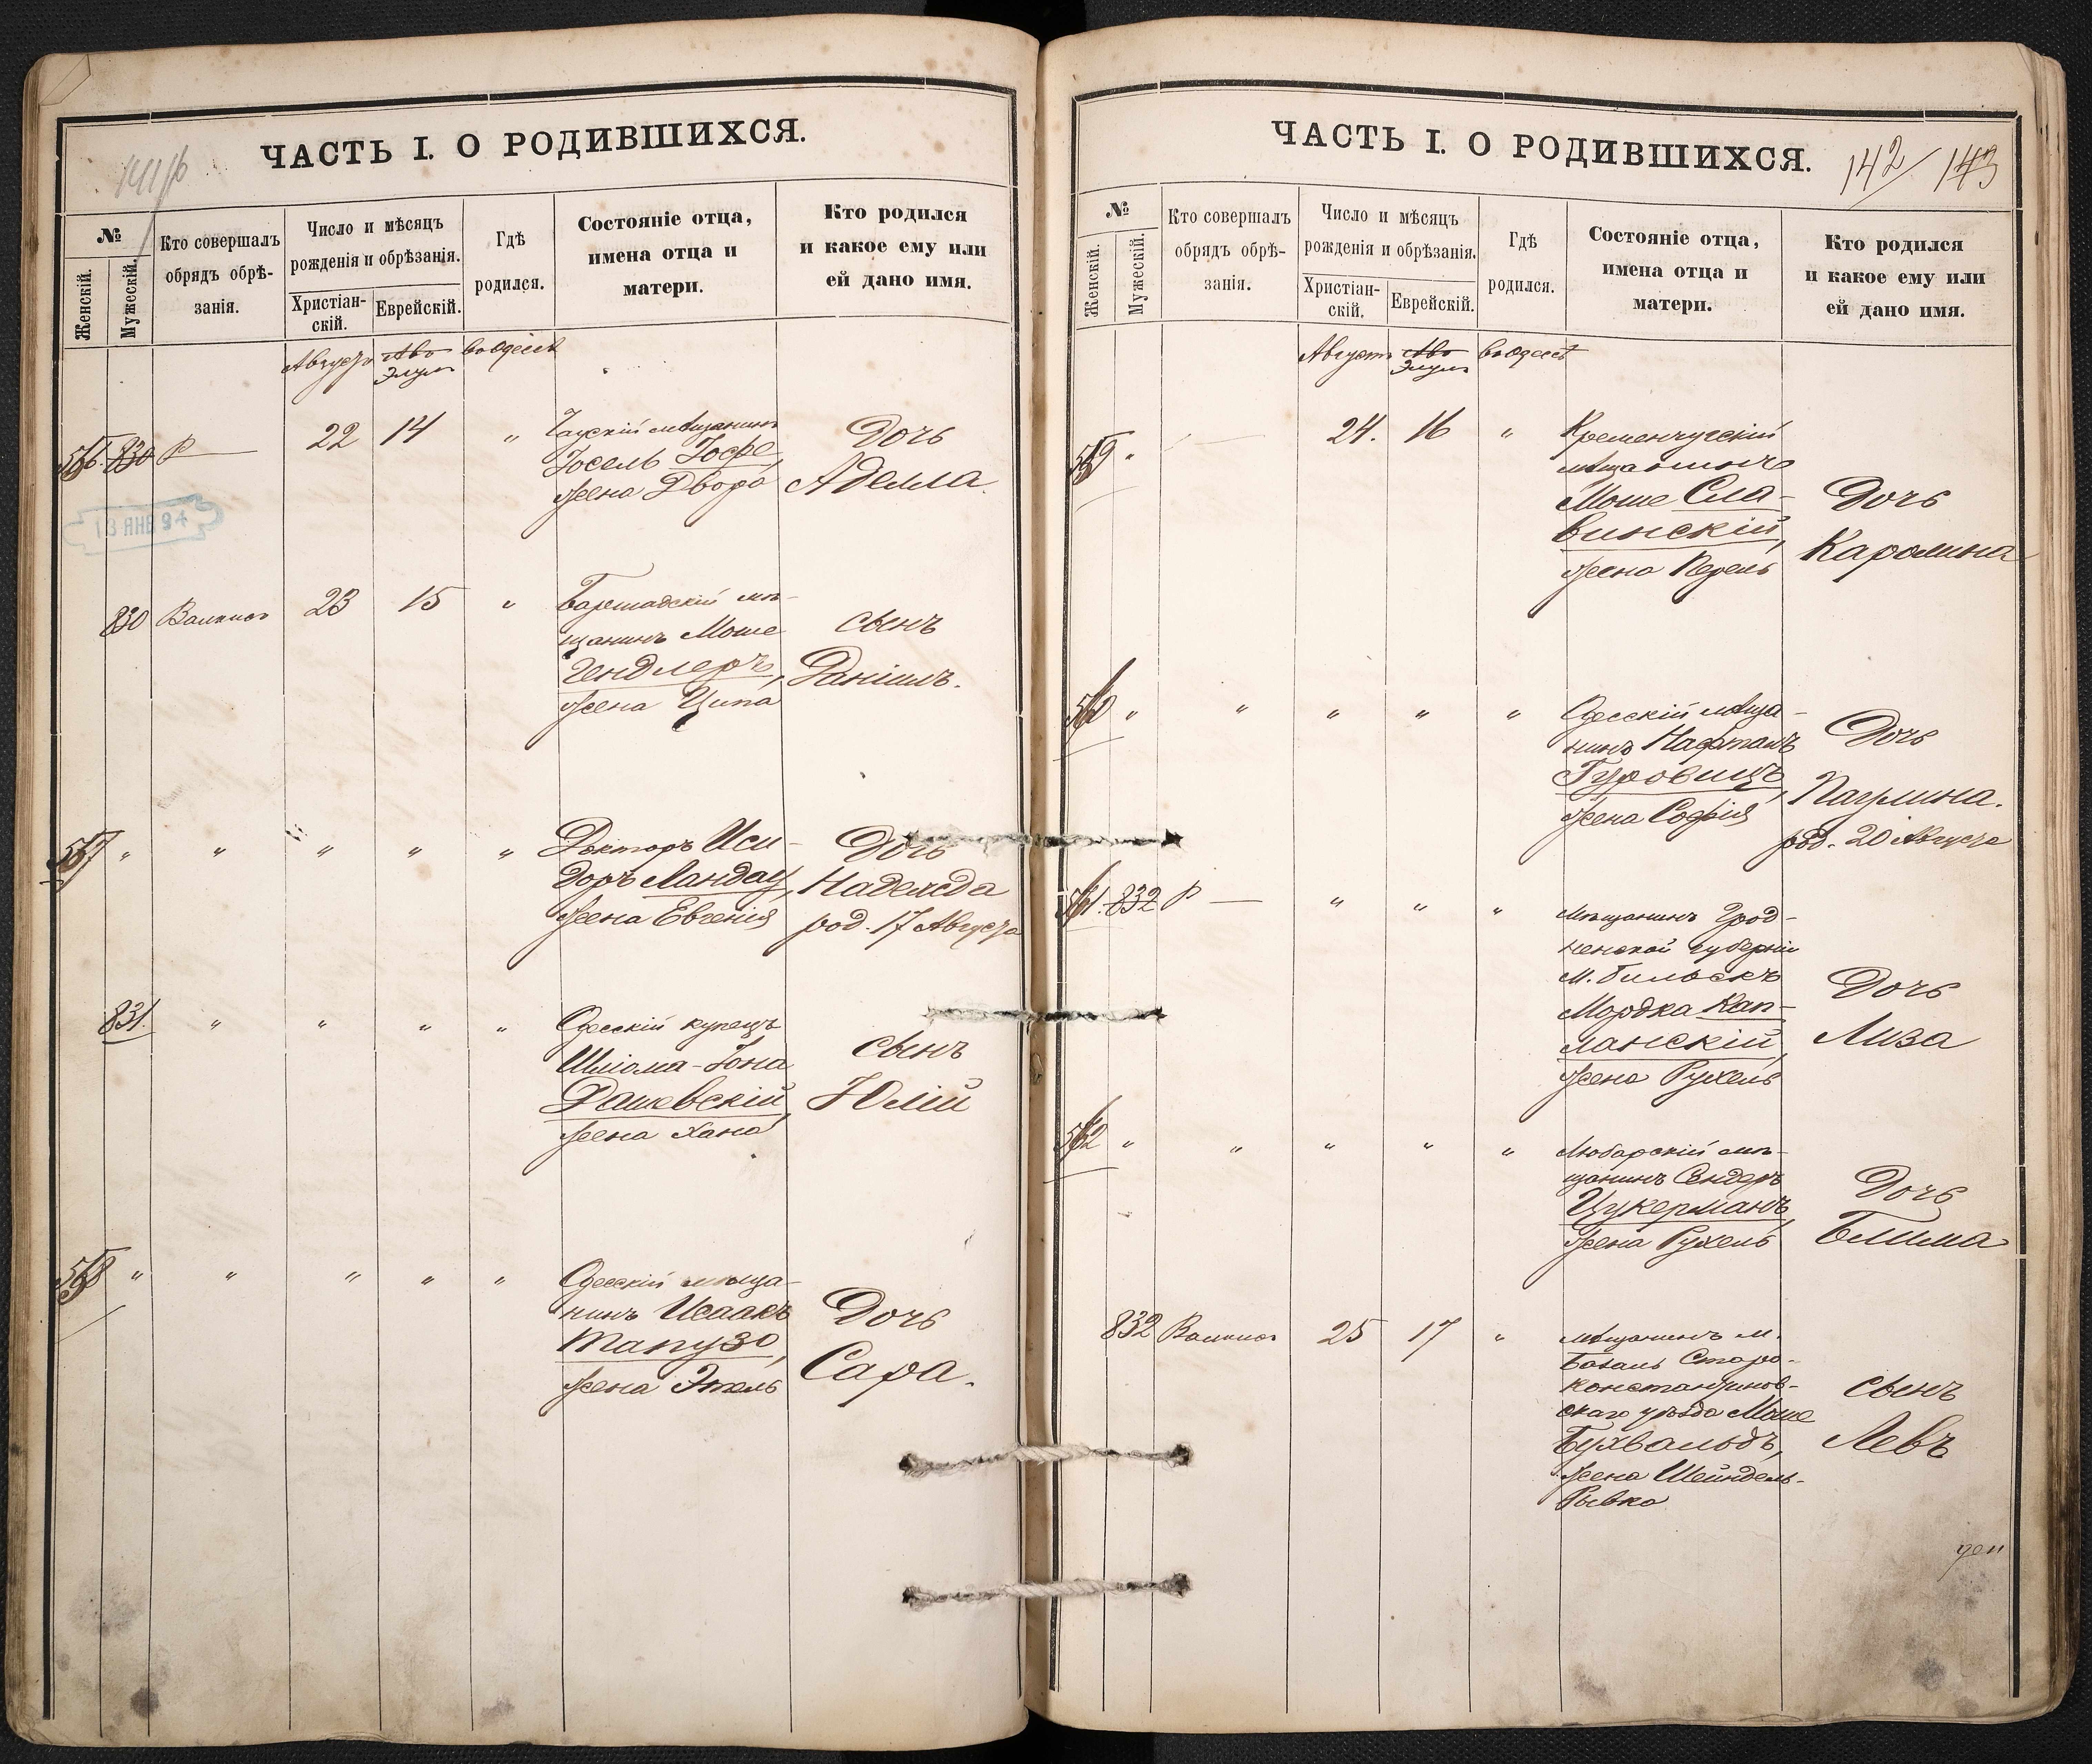 ЧАСТЬ I. О РОДИВШИХСЯ.
№
Женскій.
Мужескій.
Кто совершалъ
обрядъ обрѣ-
занія.
Число и мѣсяцъ
рожденія и обрѣзанія.
Христіан-
скій.
Еврейскій.
Гдѣ
родился.
Состояніе отца,
имена отца и
матери.
Кто родился
и какое ему или
ей дано имя.
Августъ Авъ въ Одессѣ
Элулъ
830 22 14 "
мѣщанинъ
Іосель Іофе,
жена Двора
Дочь
Аделла.
13 ЯНВ 94
830 23 15 "
Баршадскій мѣ-
щанинъ Моше
Гендлеръ,
жена Ципа
сынъ
Даніилъ.
" " " " "
Докторъ Иси-
доръ Ландау,
жена Евгенія
Дочь
Надежда
род. 17 Августа
831. " " " "
Одесскій купецъ
Шліома-Іона
Дашевскій,
жена Хана
сынъ
Юлій
" " " " "
Одесскій мѣща-
нинъ Исаакъ
Тапузо,
жена Этель
Дочь
Сара.
ЧАСТЬ I. О РОДИВШИХСЯ.
142/143
№
Женскій.
Мужескій.
Кто совершалъ
обрядъ обрѣ-
занія.
Число и мѣсяцъ
рожденія и обрѣзанія.
Христіан-
скій.
Еврейскій.
Гдѣ
родился.
Состояніе отца,
имена отца и
матери.
Кто родился
и какое ему или
ей дано имя.
Августъ Авъ въ Одессѣ
Элулъ
" 24. 16 "
Кременчугскій
мѣщанинъ
Моше Сла-
винскій,
жена Перель
Дочь
Каролина
" " " " "
Одесскій мѣща-
нинъ Нафталь
Гуровицъ,
жена Софія
Дочь
Паулина.
род. 20 Августа
832 " " "
Мѣщанинъ Грод-
ненской губерніи
м. Бильскъ
Мордка Кап-
ланскій,
жена Рухель
Дочь
Лиза
" " " " "
Любарскій мѣ-
щанинъ Сендеръ
Цукерманъ,
жена Рухель
Дочь
Блима
832 25 17 "
мѣщанинъ м.
Старо-
константинов-
скаго уѣзда Моше
Бухвальдъ,
жена Шейндель-
Рывка
сынъ
Левъ